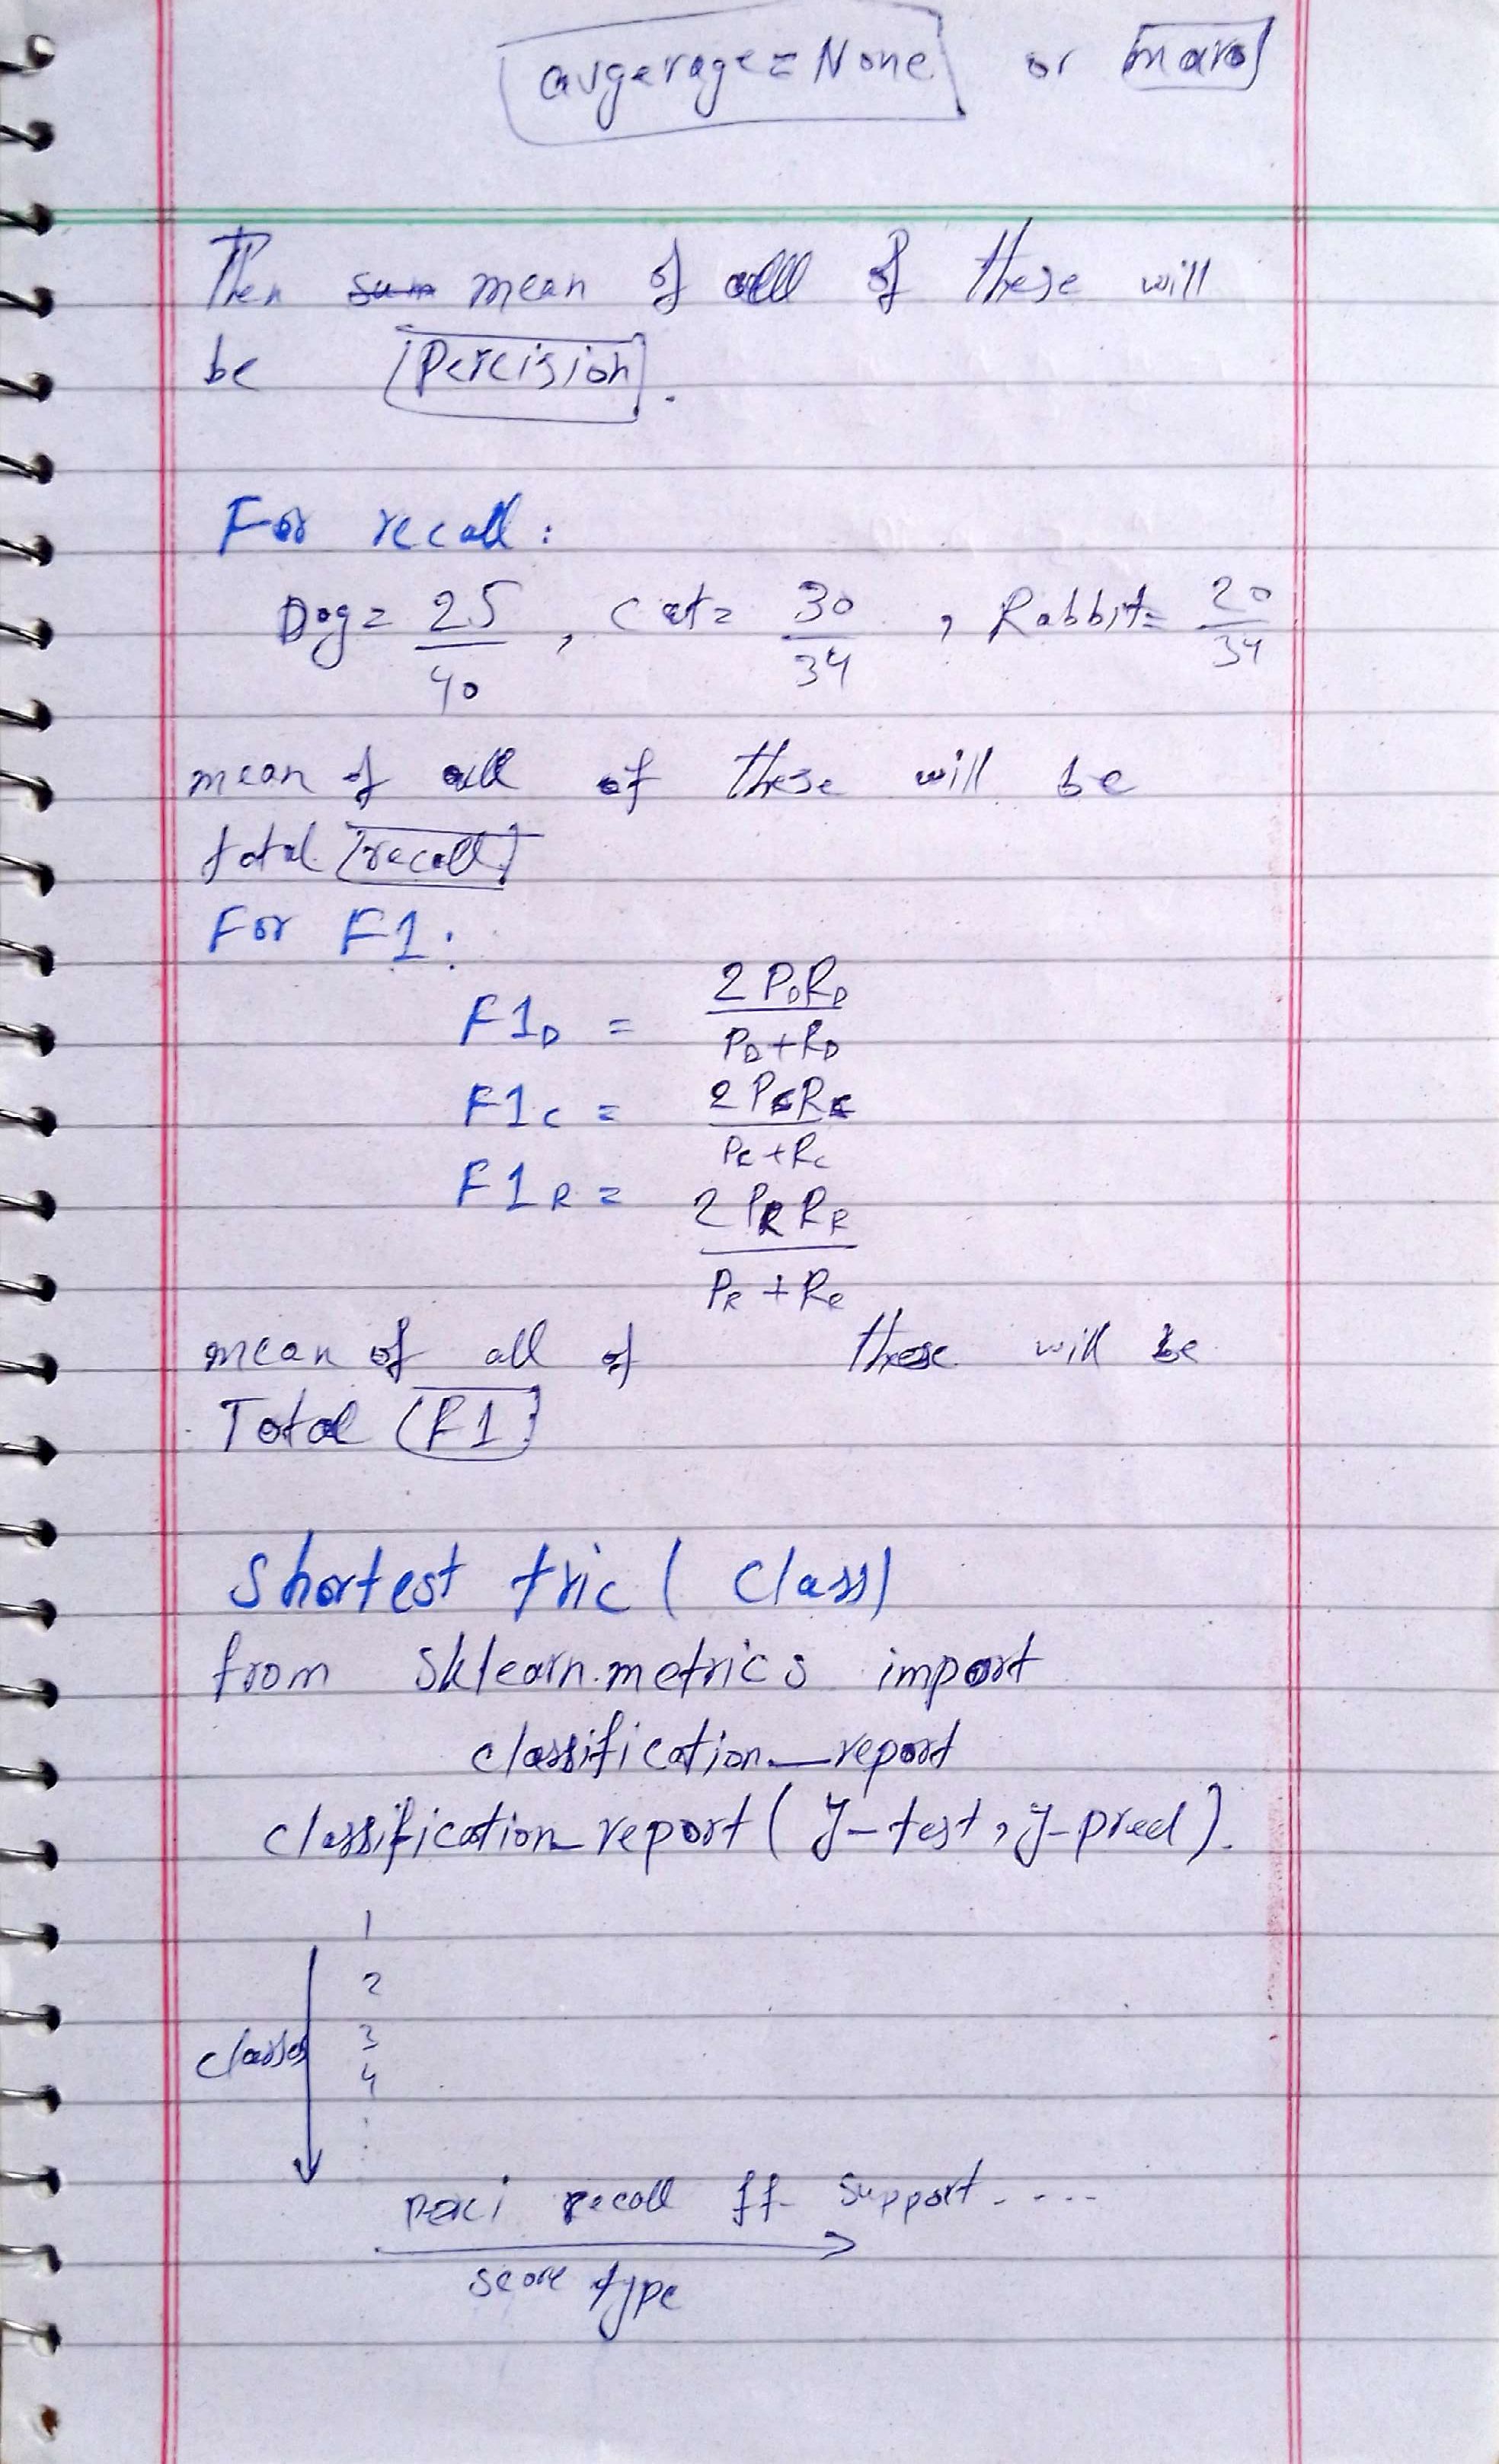 avgerage = None or maro
Then sum mean of all of these will
be Percision.
For recall:
Dog = 25/40, Cat = 30/34, Rabbit = 20/34
mean of all of these will be
total recall
For F1:
F1D = 2PDRD/PD+RD
F1C = 2PCRC/PC+RC
F1R = 2PRRR/PR+RR
mean of all of these will be
Total F1
Shortest tric (Class)
from sklearn.metrics import
classification_report
classification_report(y-test, y-pred).
1
2
classes 3
4
:
perci recall ff- support.....
score type